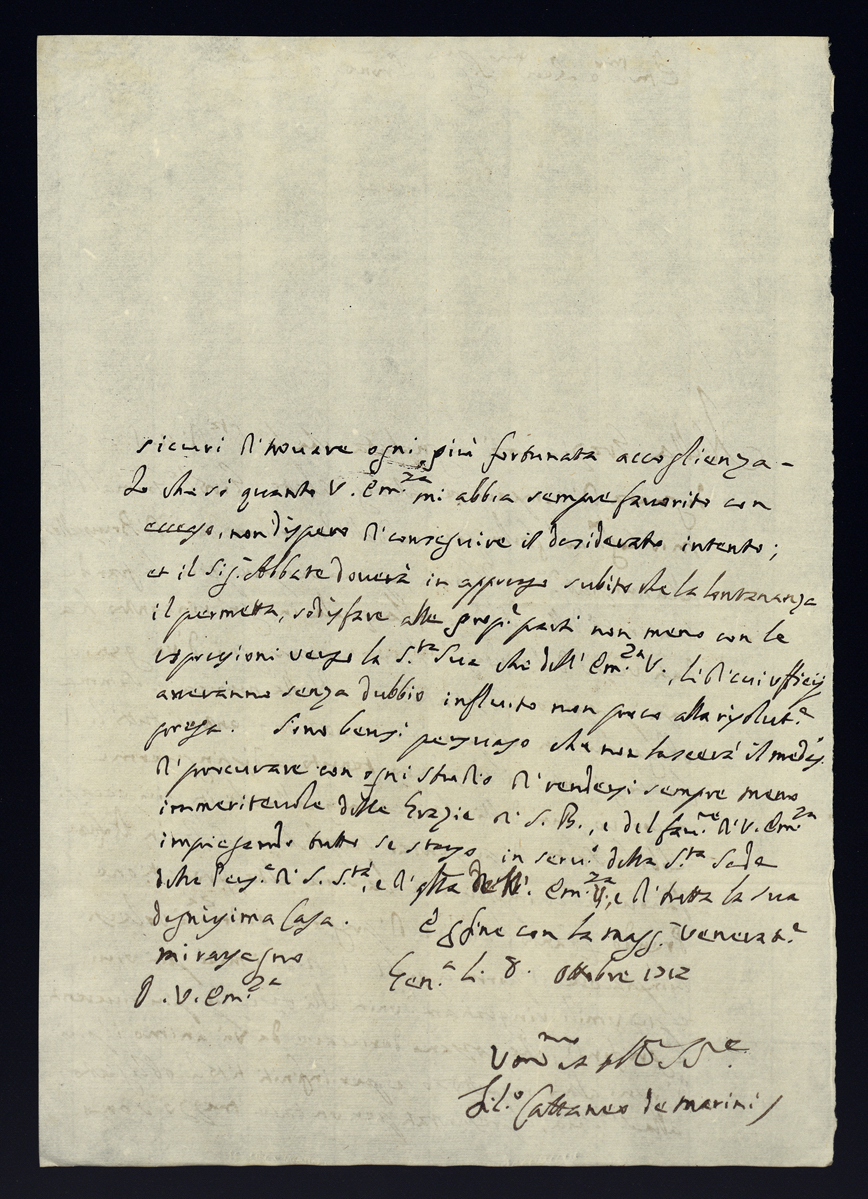 sicuri di trovare ogni più fortunata accoglienza -
Io che sò quanto V. Em.za mi abbia sempre favorito con
eccesso, non dispero di conseguire il desiderato intento;
et il Sig.r Abbate doverà in appresso subito che la lontananza
il permetta, sodisfare alle prop.e parti non meno con le
espressioni verso la S.tà Sua che dell' Em.za V., li di cui ufficij
averanno senza dubbio influito non poco alla risolut.e
presa. Sono bensi persuaso che non lascerà il medes.
di procurare con ogni studio di rendersi sempre meno
immeritevole delle Grazie di S. B., e del fau.re di V. Em.za
impiegando tutto se stesso in serv.o della S.ta Sede
della Pers.a di S. S.tà, e di q.lla dell' Em.za V., e di tutta la sua
degnissima Casa. E per fine con la mass.a venerat.e
mi rassegno
D. V. Em.za Gen.a li 8. Ottobre 1712
Filo Cattaneo de Marini